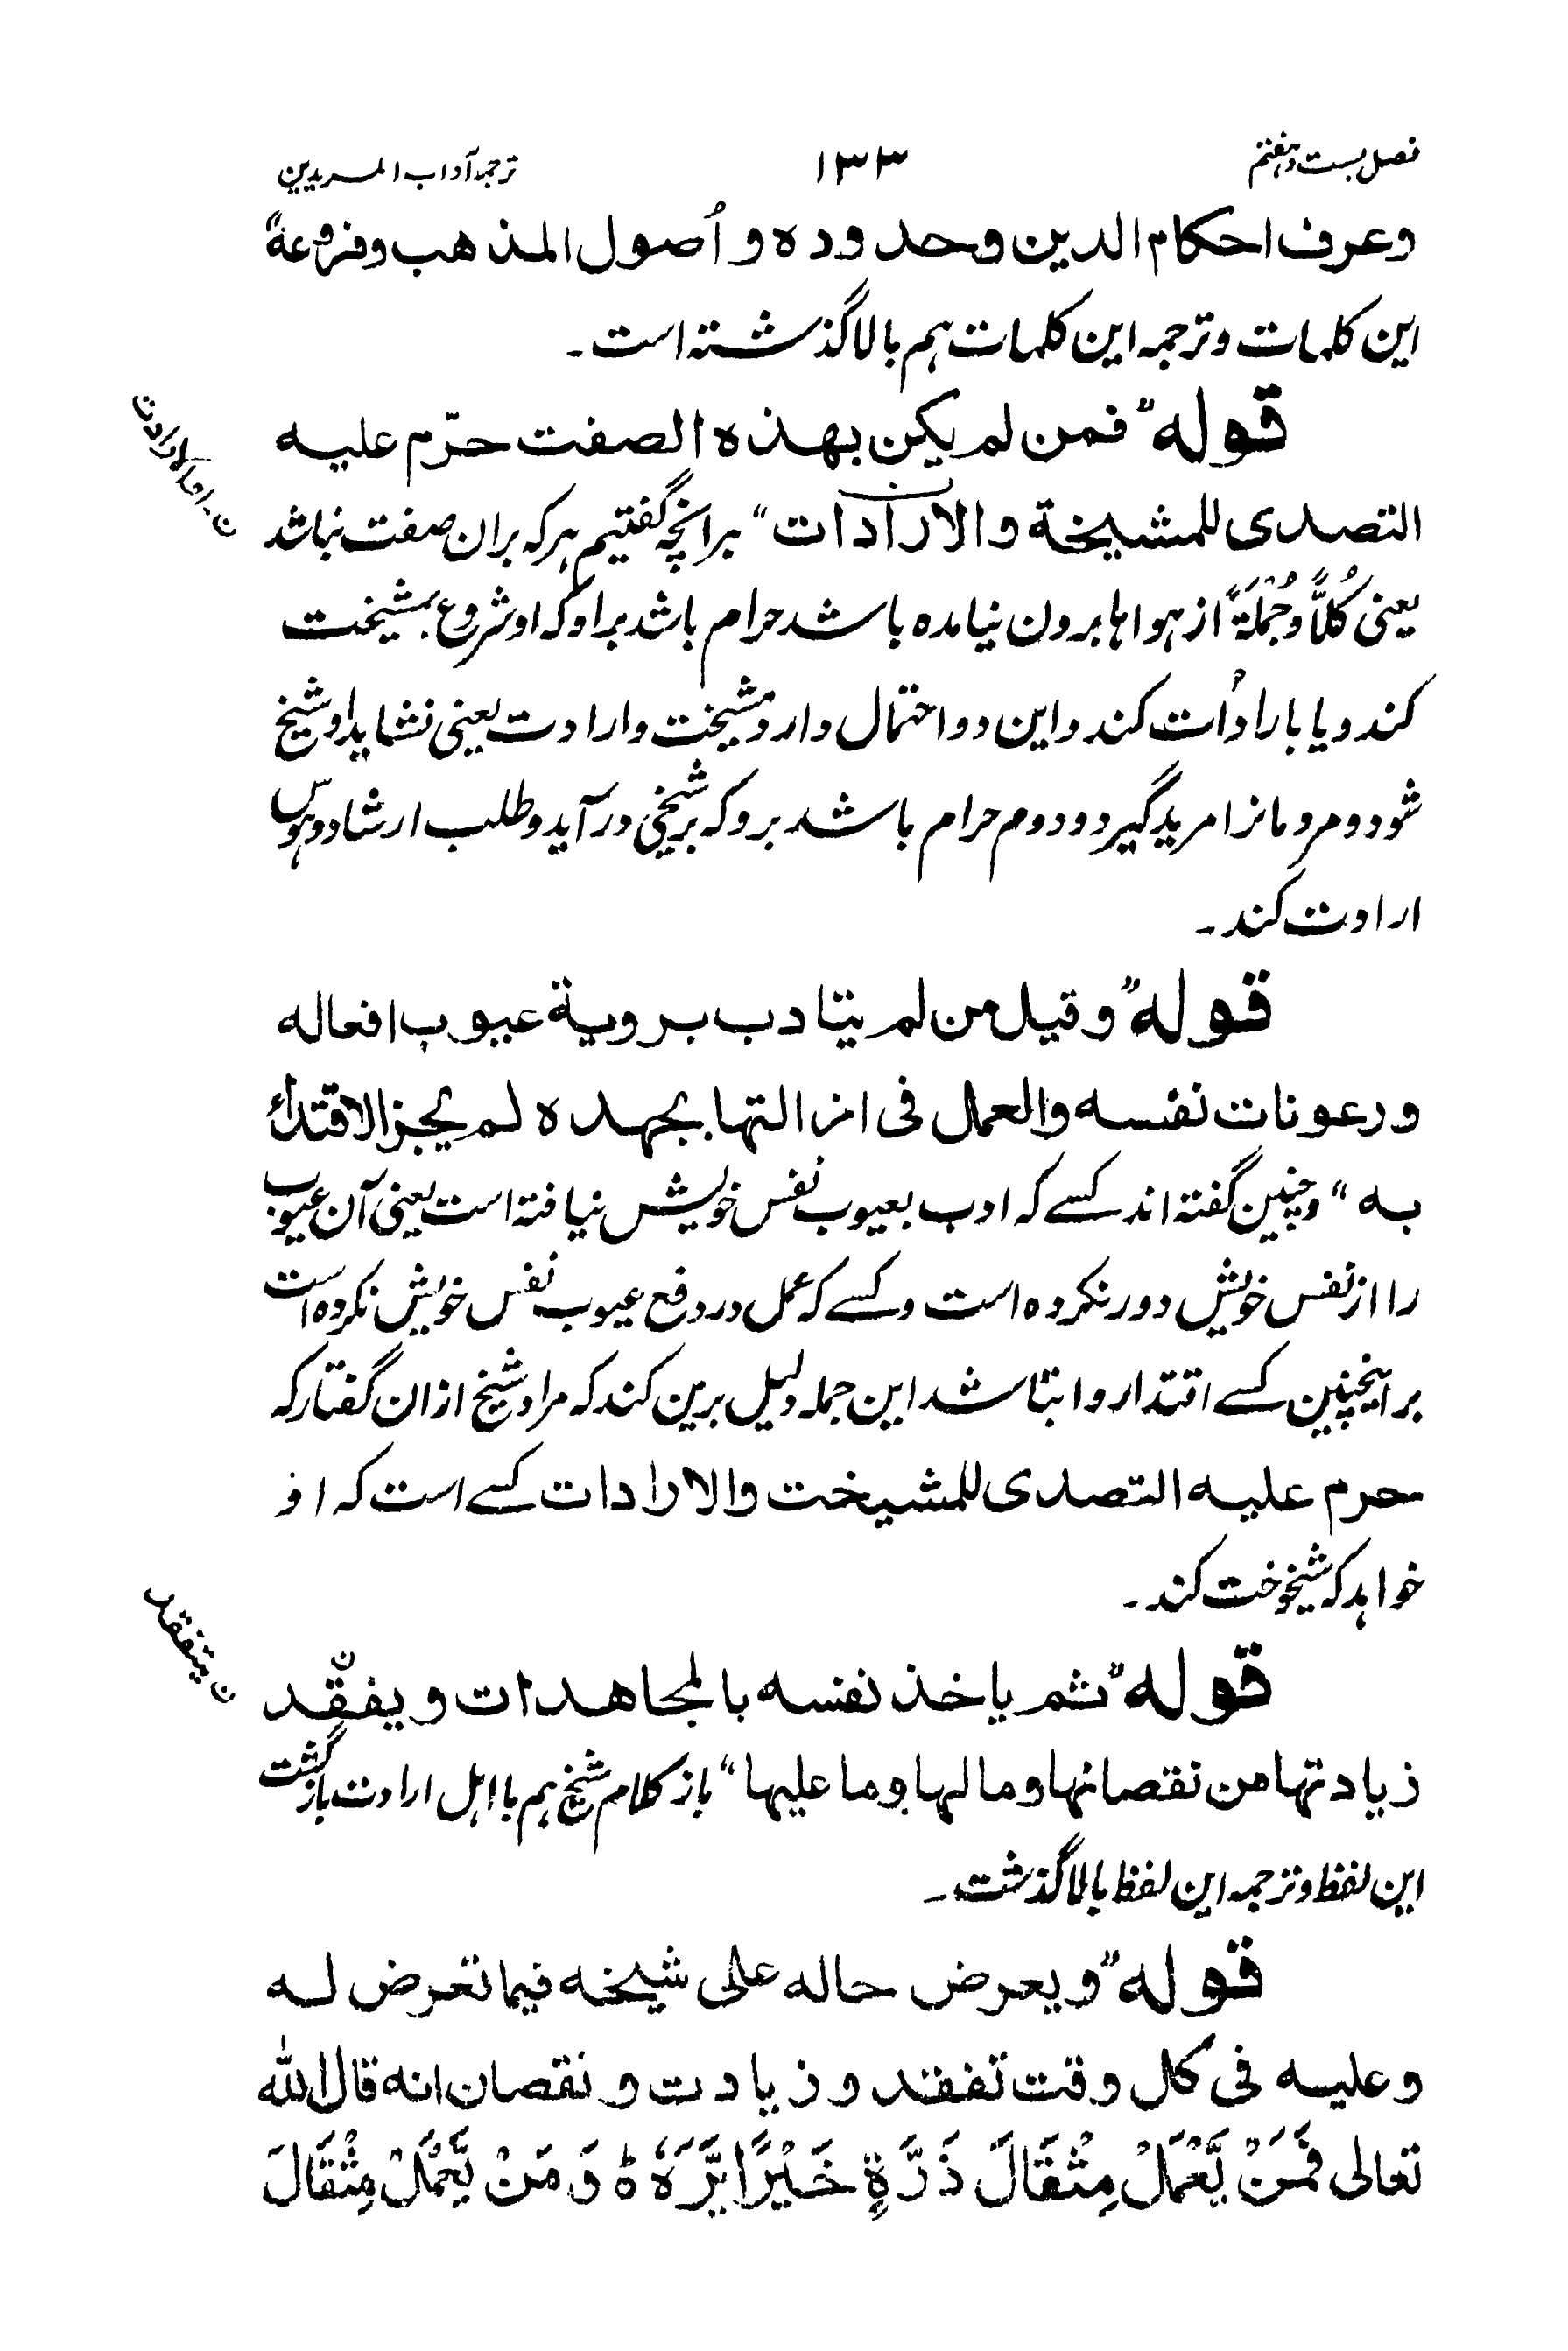 فصل بست و هفتم
۱۳۳
ترجمہ آداب المریدین
وعرف احکام الدین وحدودہ و اُصول المذھب وفروعہٗ
این کلمات و ترجمہ این کلمات ہم بالا گذشتہ است ۔
قولہ ” فمن لم یکن بھذہ الصفت حرّم علیہ
التصدی للمشیخة والارادات “ برانچہ گفتیم ہرکہ بران صفت نباشد
یعنی کُلاًّ وجُمْلَةً از ہواہا برون نیامدہ باشد حرام باشد براو کہ او شروع بمشیخت
کند و یا بارادْات کند و این دو احتمال دارد مشیخت و ارادت یعنی نشاید او شیخ
شود و مردمانرا مرید گیرد و دوم حرام باشد برو کہ بر شیخی درآید و طلب ارشاد و ہوس
ارادت کند ۔
قولہ ” وقیل من لم یتادب برویة عیوب افعالہ
ورعونات نفسہ والعمل فی ازالتہا بجہدہ لم یجز الاقتداء
بہ “ وچنین گفتہ اند کسے کہ ادب بعیوب نفس خویش نیافتہ است یعنی آن عیوب
را از نفس خویش دور نکردہ است و کسے کہ عمل در دفع عیوب نفس خویش نکردہ است
براینچنین کسے اقتدا روا نباشد این جملہ دلیل برین کند کہ مراد شیخ ازان گفتار کہ
حرم علیہ التصدی للمشیخت والارادات کسے است کہ او
خواہد کہ شیخوخت کند ۔
قولہ ” ثم یاخذ نفسہ بالمجاھدات و یفقّد
زیادتہا من نقصانہا وما لہا وما علیہا “ باز کلام شیخ ہم با اہل ارادت بازگشت
این لفظ و ترجمہ این لفظ بالا گذشت ۔
قولہ ” و یعرض حالہ علی شیخہ فیما تعرض لہ
وعلیہ فی کل وقت تفقد و زیادت و نقصان انہ قال اللہ
تعالی فَمَنْ یَّعْمَلْ مِثْقَالَ ذَرَّةٍ خَیْرًا یَّرَہٗ ط وَ مَنْ یَّعْمَلْ مِثْقَالَ
ن ۔ او الارادت
ن یتفقد